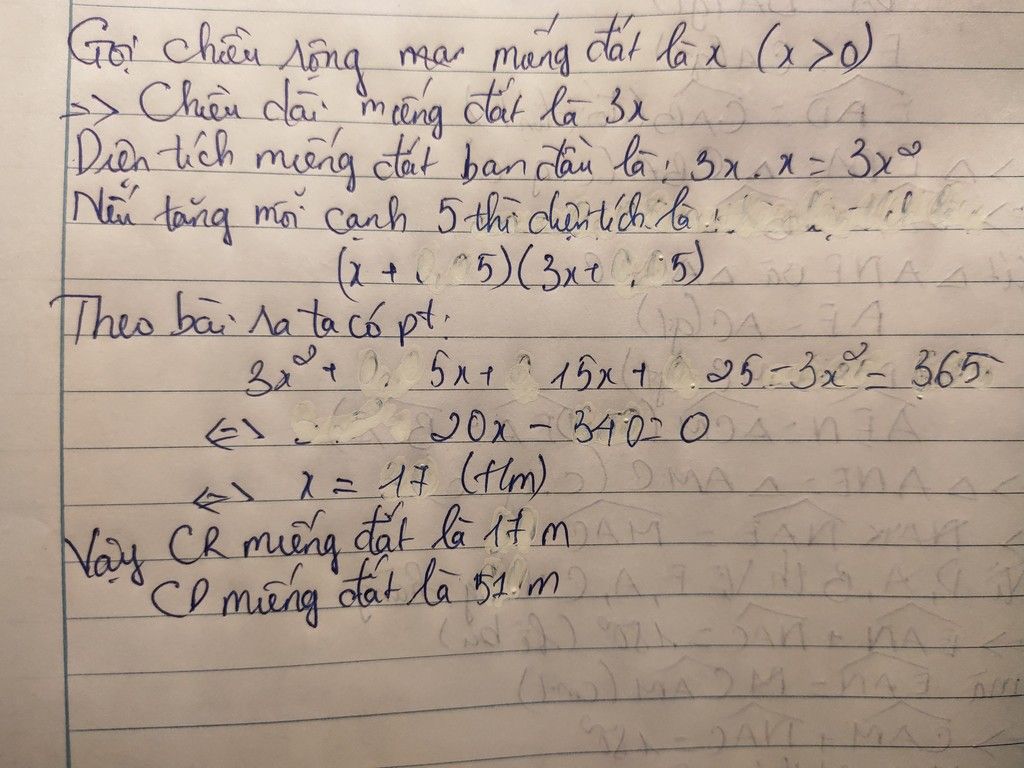 Gọi chiều rộng mar miếng đất là x (x > 0)
=> Chiều dài miếng đất là 3x
Diện tích miếng đất ban đầu là: 3x . x = 3x²
Nếu tăng mỗi cạnh 5 thì diện tích là:
(x + 5)(3x + 5)
Theo bài ra ta có pt:
3x² + 5x + 15x + 25 - 3x² = 365
<=> 20x - 340 = 0
<=> x = 17 (t/m)
Vậy CR miếng đất là 17 m
CD miếng đất là 51 m